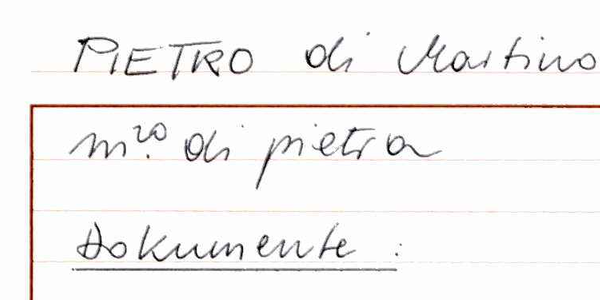 PIETRO di Martino
m.ro di pietra
Dokumente :